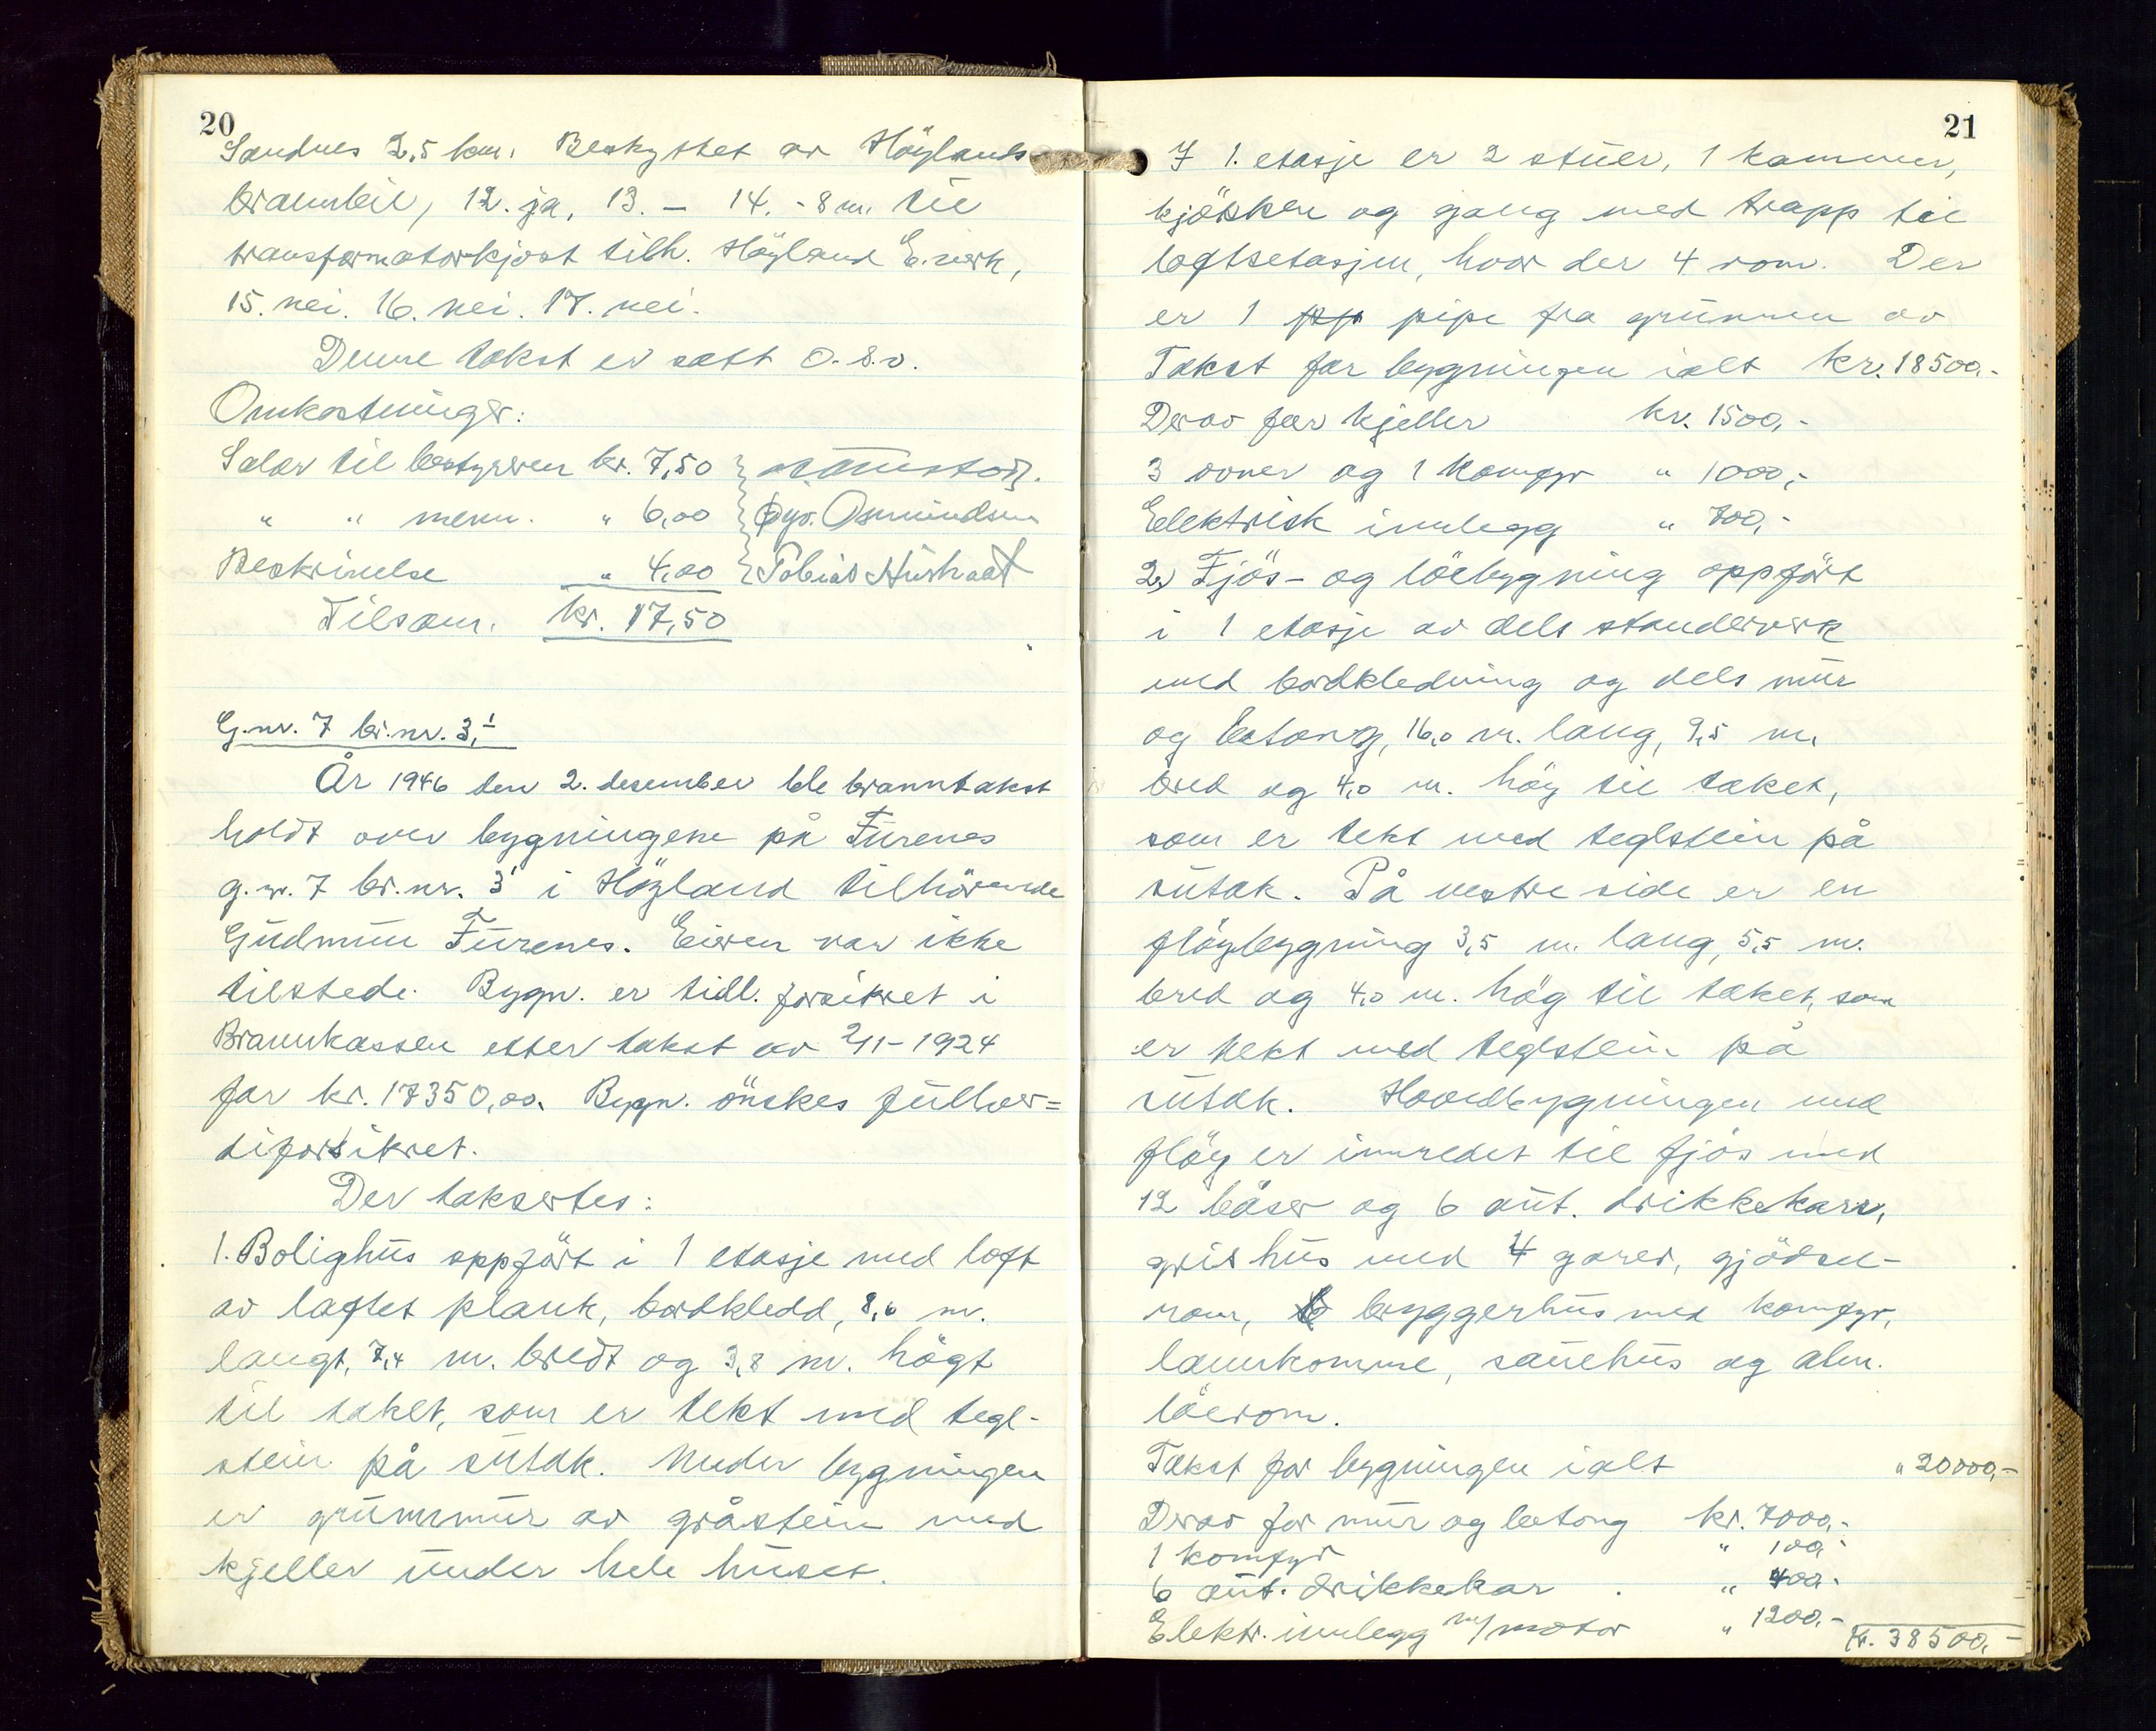 20
Sandnes 2,5 km. Beskyttet av Höylands
brannbil, 12. ja, 13. – 14. - 8 m. til
transformatorkjost tilh. Höyland E.verk,
15. nei. 16. nei. 17. nei.
Denne takst er satt o. s. v.
Omkostninger:
Salær til bestyreren kr. 7,50
" " menn. " 6,00 Osmundsen
Beskrivelse " 4,00 Tobias
Tilsam. kr. 17,50
G.nr. 7 br.nr. 3,1
År 1946 den 2. desember ble branntakst
holdt over bygningene på Furenes
g.nr. 7 br.nr. 3 1 i Höyland tilhörende
Gudmun Furenes. Eieren var ikke
tilstede. Bygn. er tidl. forsikret i
Brannkassen etter takst av 2/11-1924
for kr. 17350,00. Bygn. önskes fullver=
diforsikret.
Der taksertes:
1. Bolighus oppfört i 1 etasje med loft
av laftet plank, bordkledd, 8,6 m.
langt, 7,4 m. bredt og 3,8 m. högt
til taket, som er tekt med tegl-
stein på sutak. Under bygningen
er grunnmur av gråstein med
kjeller under hele huset.
21
I 1. etasje er 2 stuer, 1 kammer,
kjökken og gang med trapp til
loftsetasjen, hvor der 4 rom. Der
er 1 pipe fra grunnen av
Takst for bygningen ialt kr. 18500,-
Derav for kjeller kr. 1500,-
3 ovner og 1 komfyr " 1000,-
Elektrisk innlegg " 700,-
2) Fjös- og löebygning oppfört
i 1 etasje av dels standerverk
med bordkledning og dels mur
og betong, 16,0 m. lang, 9,5 m.
bred og 4,0 m. höy til taket,
som er tekt med teglstein på
sutak. På vestre side er en
flöybygning 3,5 m. lang, 5,5 m.
bred og 4,0 m. hög til taket, som
er tekt med teglstein på
sutak. Hovedbygningen med
flöy er innredet til fjös med
12 båser og 6 aut. drikkekarr,
grishus med 4 garer, gjödsel-
rom, bryggerhus med komfyr,
lannkomme, sauehus og alm.
löerom.
Takst for bygningen ialt " 20000,-
Derav for mur og betong kr. 7000,-
1 komfyr " 100,-
6 aut. drikkekar " 400,-
Elektr. innlegg m/motor " 1200,-
Kr. 38500,-